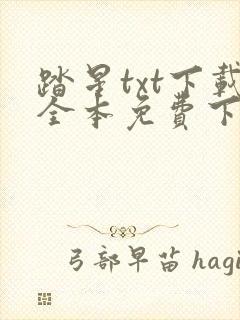 踏星txt下載
全本免費下
弓部早苗 hagi